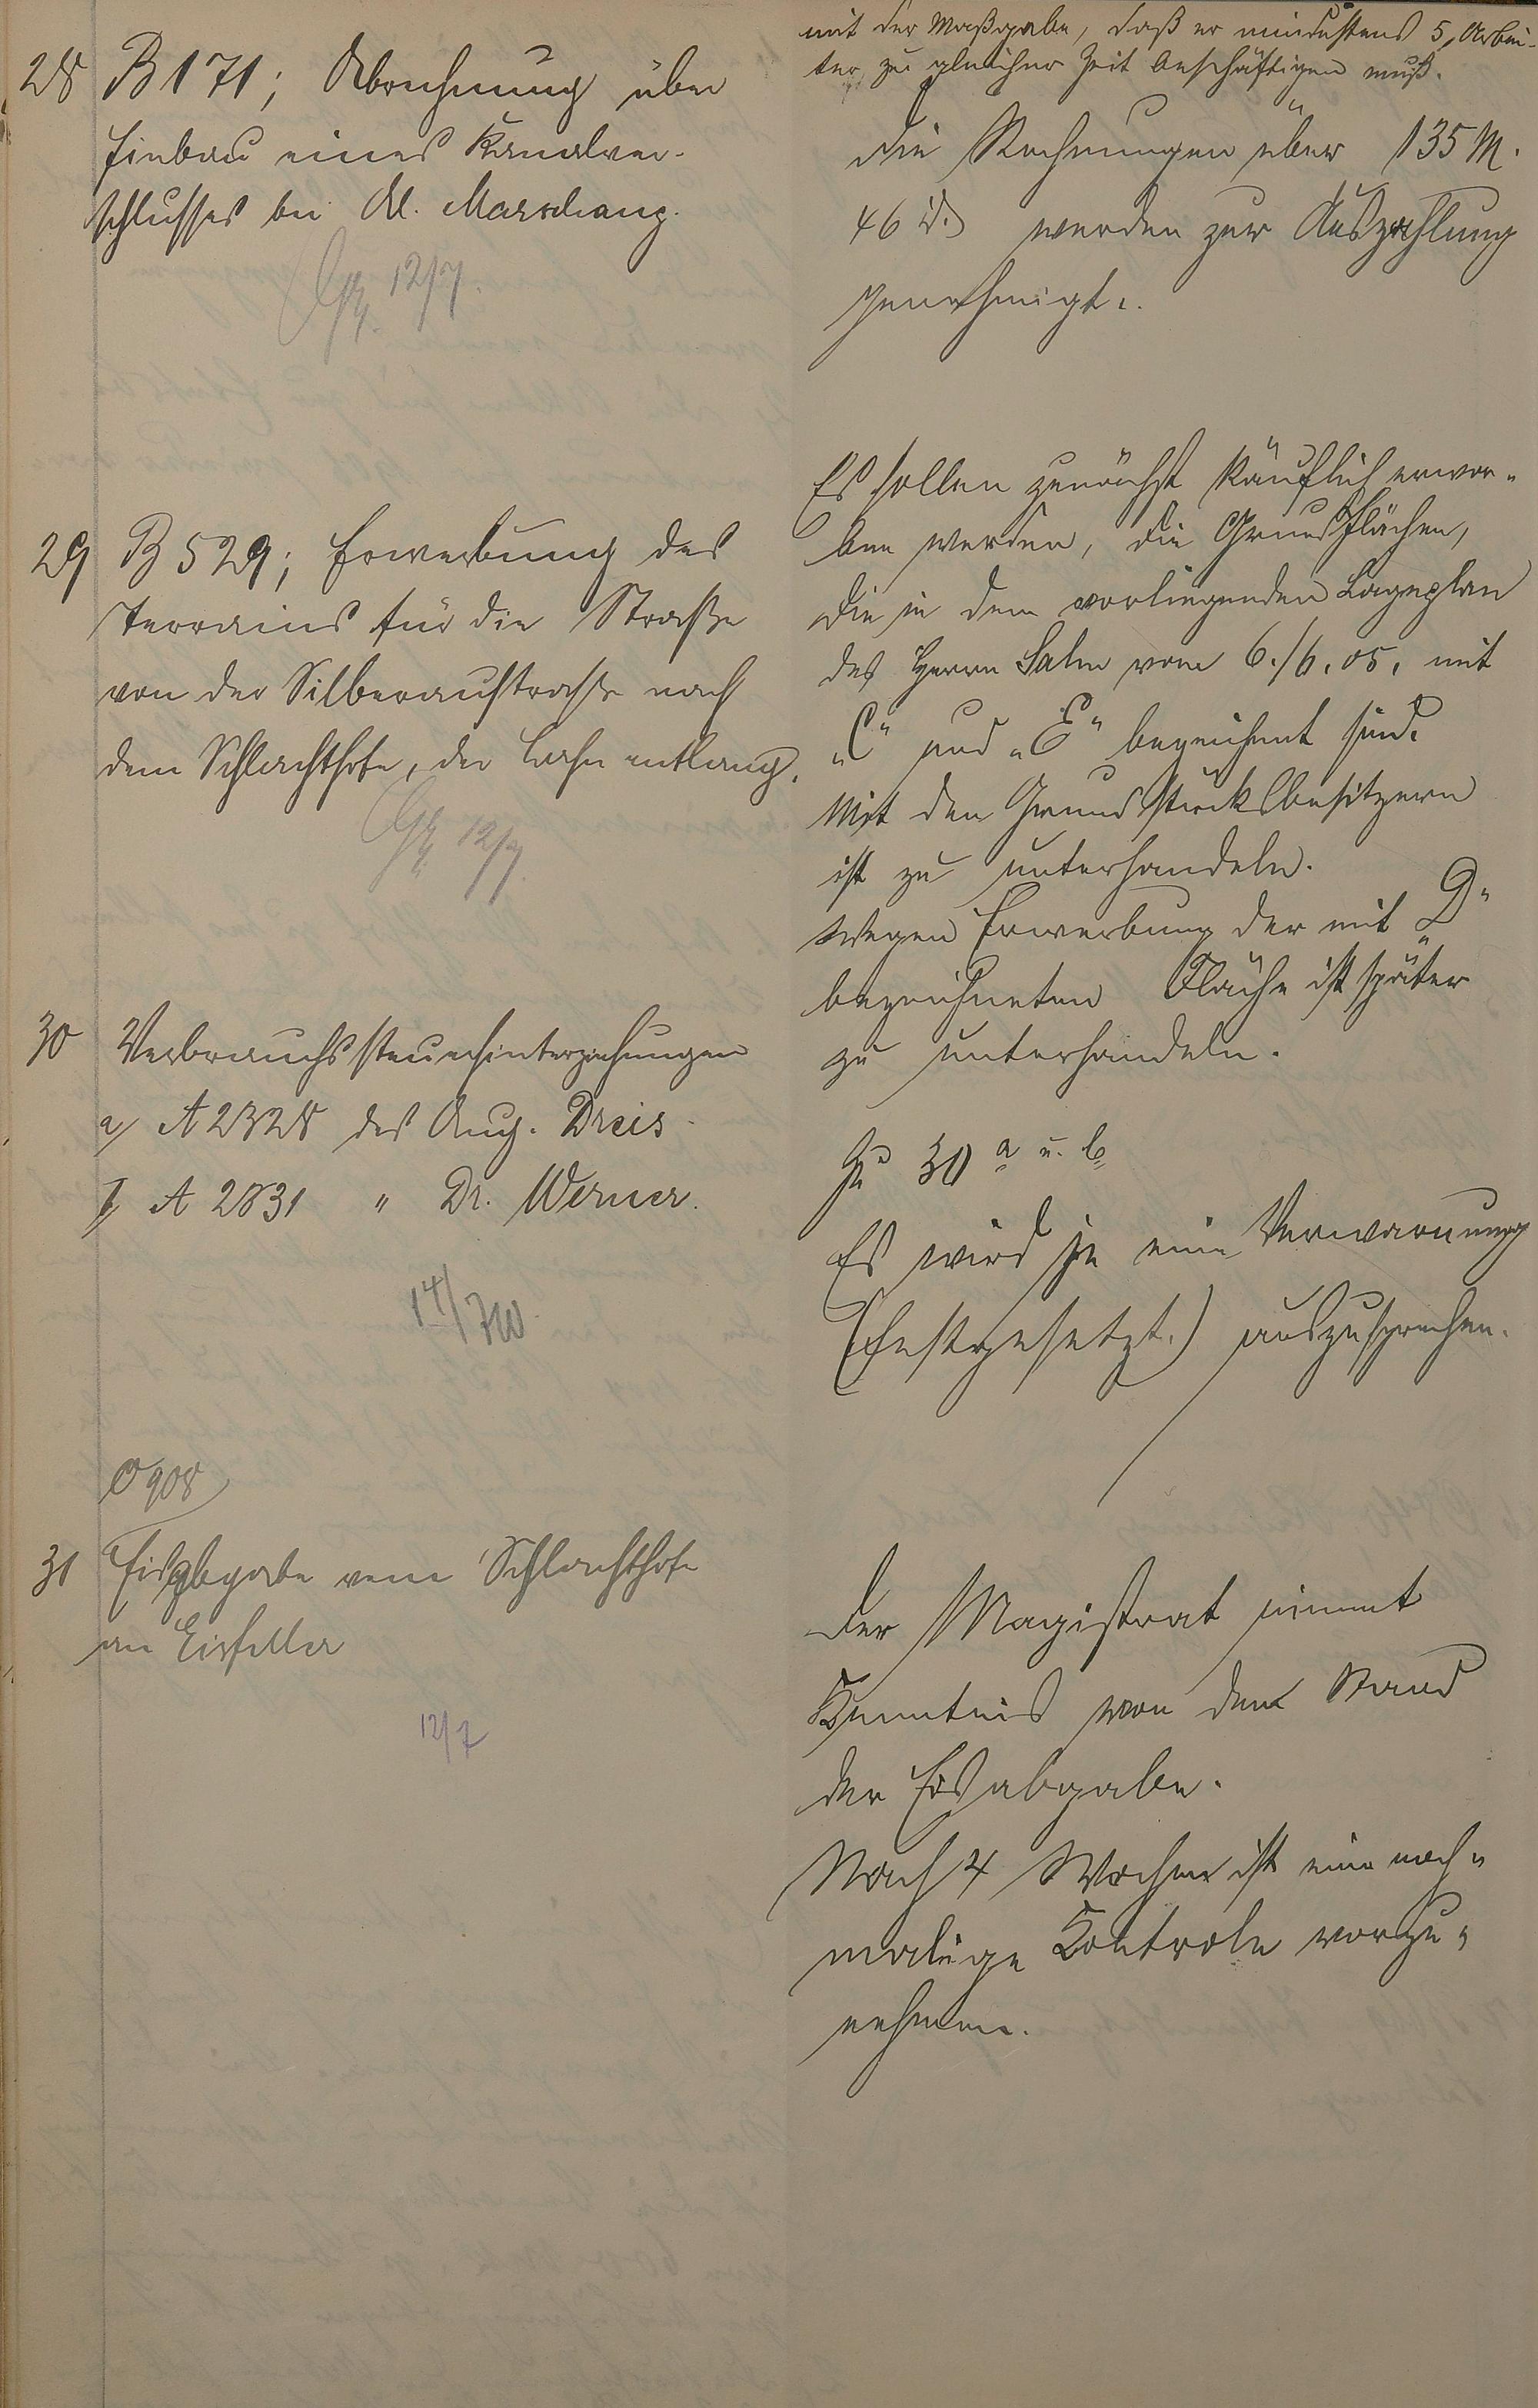 mit der Maßgabe, daß er mindestens 5 Arbei-
ter zu gleicher Zeit beschäftigen muß.
28 B 171; Abrechnung über
Einbau eines Kanalver-
schlusses bei Al. Marschang.
12/7.
Die Rechnungen über 135 M.
46 d. werden zur Auszahlung
genehmigt.
29 B 529; Erwerbung des
Terrains für die Straße
von der Silberaustraße nach
dem Schlachthofe, der Lahn entlang.
12/7.
Es sollen zunächst käuflich erwor-
ben werden, die Grundflächen,
die in dem vorliegenden Lageplan
des Herrn Salm vom 6./6. 05. mit
„C" und „E" bezeichnet sind.
Mit den Grundstücksbesitzern
ist zu unterhandeln.
Wegen Erwerbung der mit „D"
bezeichneten Fläche ist später
zu unterhandeln.
30 Verbrauchssteuerhinterziehungen
a/ A 2328 des Aug. Dreis
b/ A 2831 " Dr. Werner.
14/7
Zu 30 a u. b
Es wird je eine Verwarnung
(festgesetzt.) auszusprechen.
C 908
31 Eisabgabe vom Schlachthofe
an Eisfeller
12/7
Der Magistrat nimmt
Kenntnis von dem Stand
der Eisabgabe.
Nach 4 Wochen ist eine noch-
malige Kontrole vorzu-
nehmen.